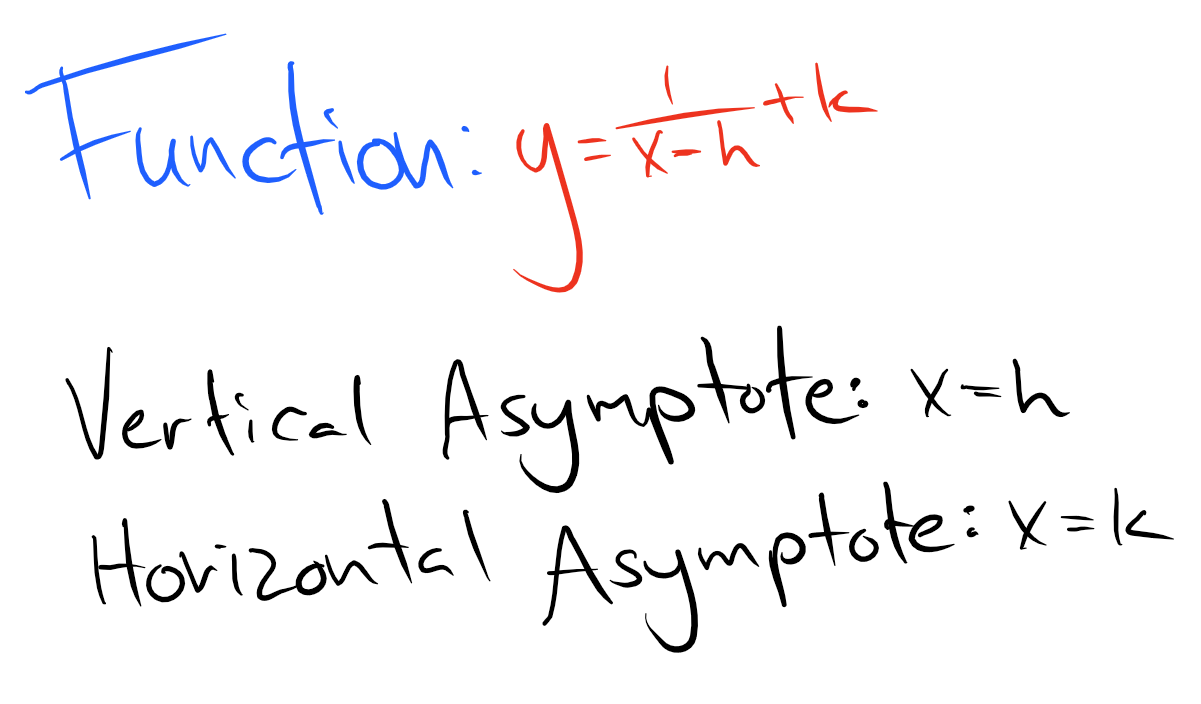 Function: y = 1/(x-h) + k
Vertical Asymptote: x=h
Horizontal Asymptote: x=k